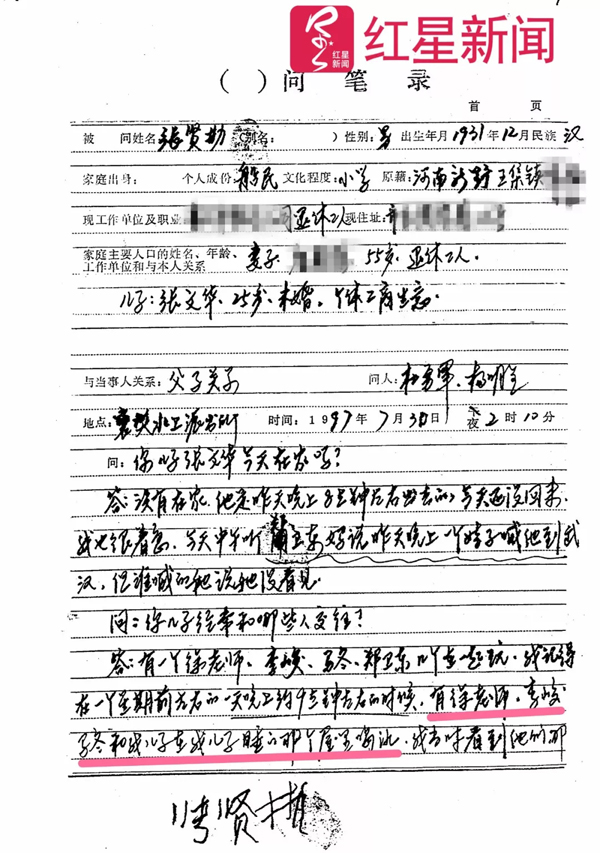 红星新闻
红星新闻
( )问 笔 录
首 页
被 问姓名 张贤勤 (别名: )性别:男 出生年月1931年12月民族 汉
家庭出身: 个人成份 船民 文化程度:小学 原籍:河南新野王集镇
现工作单位及职业 司退休工人 现住址:市
家庭主要人口的姓名、年龄、
工作单位和与本人关系 妻子 55岁.退休工人.
儿子:张文华、25岁、未婚、个体工商生意
与当事人关系:父子关系 问人:
地点:襄樊水上派出所 时间:1997年7月30日 夜2时10分
问:你儿子张文华今天在家吗?
答:没有在家.他是昨天晚上8点钟左右出去的,今天还没回来
我也很着急,今天中午听 卫东妈说昨天晚上一个娃子喊他到武
汉,但谁喊的她说她没看见.
问:你儿子经常和哪些人交往?
答:有一个徐老师、李峻、马冬、郑卫东几个在一起玩.我记得
在一个星期前左右的一天晚上约9点钟左右的时候,有徐老师、李峻
马冬和我儿子在我儿子睡的那个屋里喝酒.我当时看到他们那
张贤勤